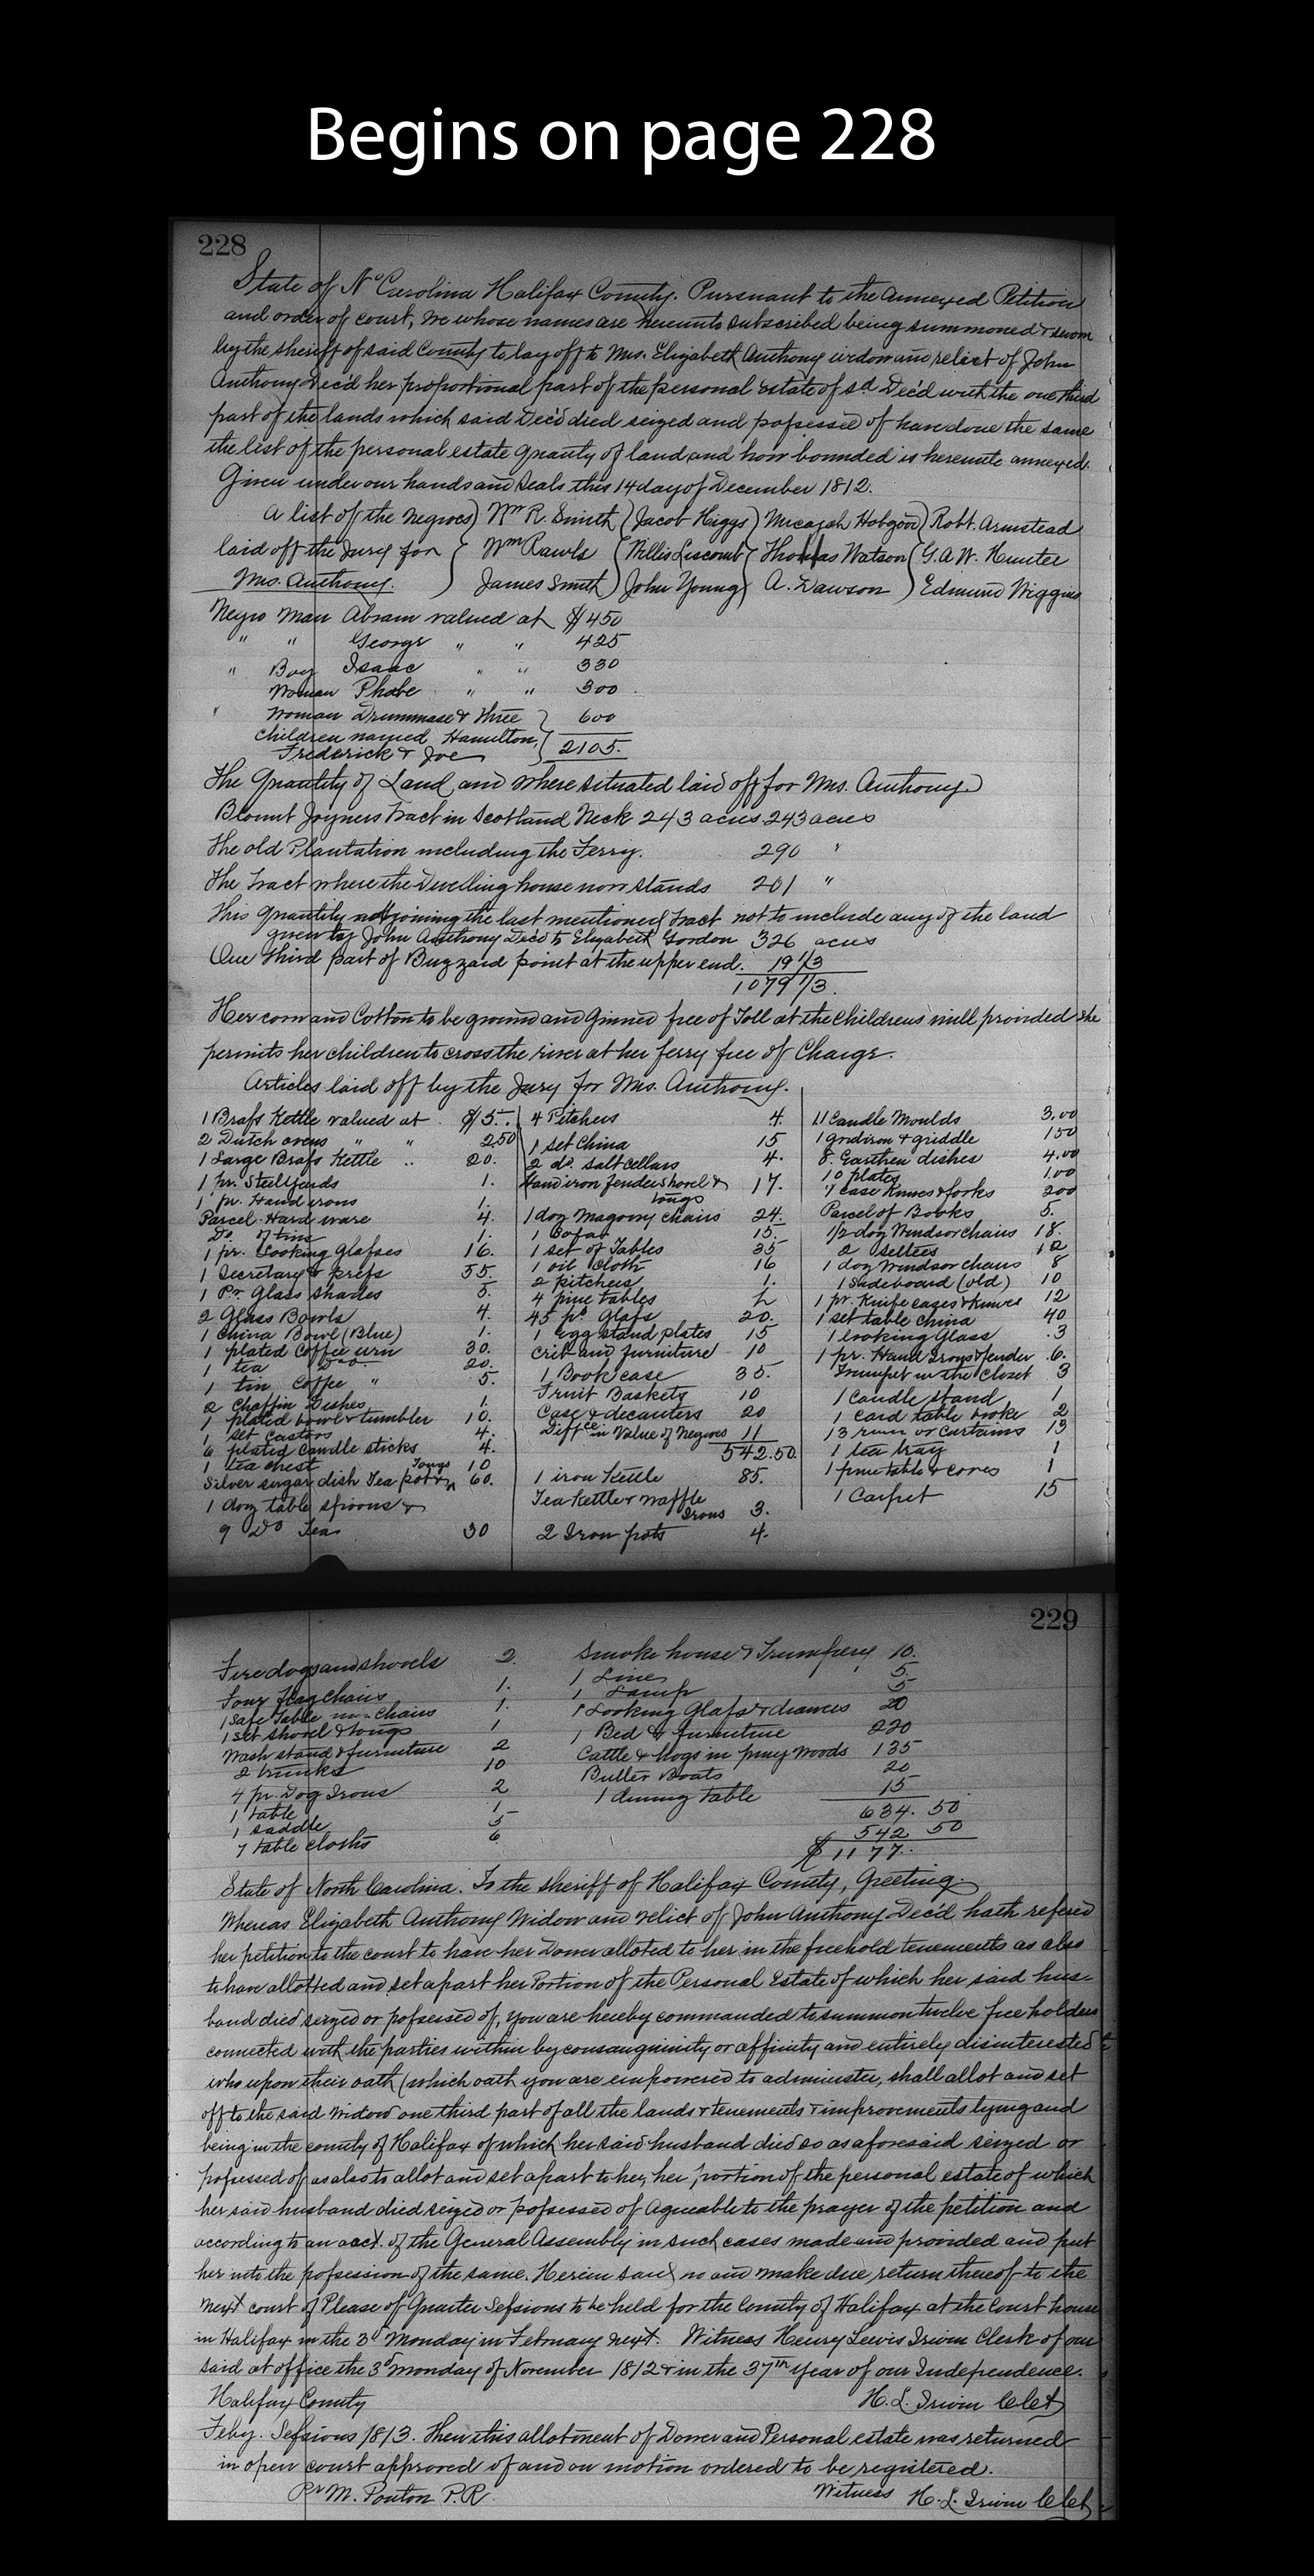 Begins on page 228
228
State of No Carolina Halifax County. Pursuant to the annexed Petition
and order of court, We whose names are hereunto subscribed being summoned & sworn
by the sheriff of said County to lay off to Mrs. Elizabeth Anthony widow and relict of John
Anthony Dec'd her proportional part of the personal Estate of sd Dec'd with the one third
part of the lands which said Dec'd died seized and possessed of have done the same
the list of the personal estate quanty of land and how bounded is hereunto annexed.
Given under our hands and Seals this 14 day of December 1812.
A list of the negroes) Wm R. Smith (Jacob Higgs) Micajah Hobgood) Robt. Armstead
laid off the Jury for { Wm Rawls { Willis Liscomb { Thomas Watson { G. A. W. Hunter
Mrs. Anthony. ) James Smith) John Young) A. Dawson ) Edmund Wiggins
Negro Man Abram valued at $450
" " George " " 425
" Boy Isaac " " 330
Woman Phabe " " 300
" Woman Drummase & three } 600
children named Hamilton,
Frederick & Joe { 2105.
The Quantity of Land and where situated laid off for Mrs. Anthony.
Blount Joyners Tract in Scotland Neck 243 acres 243 acres
The old Plantation including the Ferry. 290 "
The Tract where the Dwelling house now stands 201 "
This quantity adjoining the last mentioned Tract not to include any of the land
given by John Anthony Dec'd to Elizabeth Gordon 326 acres
One third part of Buzzard point at the upper end. 19 1/3
1079 1/3.
Her corn and Cotton to be ground and Ginned free of Toll at the Childrens mill provided she
permits her children to cross the river at her ferry free of Charge.
Articles laid off by the Jury for Mrs. Anthony.
1 Brass Kettle valued at $15.
2 Dutch ovens " " 2.50
1 Large Brass Kettle " 20.
1 pr. Steelyards 1.
1 pr. Hand irons 1.
Parcel Hard ware 4.
Do. of tin 1.
1 pr. Looking Glasses 16.
1 Secretary & press 55.
1 Pr. Glass shades 5.
2 Glass Bowls 4.
1 China Bowl (Blue) 1.
1 plated Coffee urn 30.
1 tea Do 20.
1 tin Coffee " 5.
2 Chaffin Dishes 1.
1 plated bowl & tumbler 10.
1 set Castors 4.
6 plated Candle sticks 4.
1 tea chest 10
Silver sugar dish Tea pot & Tongs 60.
1 doz table spoons &
9 Do Tea 30
4 Pitchers 4.
1 set China 15
2 do. salt cellars 4.
Hand iron fender shovel &
tongs 17.
1 doz Magony chairs 24.
1 Sofa 15.
1 set of Tables 35
1 oil Cloth 16
2 pitchers 1.
4 pine tables
45 ps Glass 20.
1 Egg stand plates 15
Crib and furniture 10
1 Book case 35.
Fruit Baskets 10
Case & decanters 20
Diffce in Value of Negroes 11
542.50
1 iron Kettle 85.
Tea Kettle & Waffle
Irons 3.
2 Iron pots 4.
11 Candle Moulds 3.00
1 gridiron & griddle 150
8. Earthen dishes 4.00
10 plates 1.00
1 case Knives & forks 200
Parcel of Books 5.
1/2 doz Windsor chairs 18.
2 settees 12
1 doz Windsor chairs 8
1 Sideboard (old) 10
1 pr. Knife cases & knives 12
1 set table china 40
1 looking Glass .3
1 pr. Hand Irons & fender .6.
Trumpet in the Closet 3
1 Candle stand 1
1 card table broke 2
13 curtains 13
1 tea tray 1
1 pine table & cover 1
1 Carpet 15
229
Fire dogs and shovels 2.
Four flag chairs 1.
1 Safe Table Chairs 1.
1 set shovel & tongs 1
Wash stand & furniture 2
2 trunks 10
4 pr. Dog Irons 2
1 table 1
1 saddle 5
7 table cloths 6
Smoke house & Trumpery 10.
1 Line 5
1 Lamp 5
1 Looking Glass & drawers 20
1 Bed & furniture 220
Cattle & Hogs in piney woods 135
Butter Boats 20
1 dining table 15
634.50
542 50
$1177.
State of North Carolina. To the sheriff of Halifax County, Greeting.
Whereas Elizabeth Anthony Widow and relict of John Anthony Dec'd hath refered
her petition to the court to have her Dower alloted to her in the freehold tenements as also
to have allotted and set apart her Portion of the Personal Estate of which her said hus-
band died seized or possessed of, you are hereby commanded to summon twelve free holders
connected with the parties within by consanguinity or affinity and entirely disinterested
who upon their oath (which oath you are empowered to administer, shall allot and set
off to the said Widow one third part of all the lands & tenements & improvements lying and
being in the county of Halifax of which her said husband died so as aforesaid seized or
possessed of as also to allot and set apart to her, her portion of the personal estate of which
her said husband died seized or possessed of Agreeable to the prayer of the petition and
according to an act. of the General Assembly in such cases made and provided and put
her into the possession of the same. Herein said no and make due return thereof to the
next court of Please of Quarter Sessions to be held for the County of Halifax at the Court house
in Halifax in the 3d Monday in February next. Witness Henry Lewis Irwin Clerk of our
said at office the 3d Monday of November 1812 & in the 37th Year of our Independence.
Halifax County H. L. Irwin Clet
Feby. Sessions 1813. Then this allotment of Dower and Personal estate was returned
in open court approved of and on motion ordered to be registered.
Pr M. Ponton P. R. Witness H. L. Irwin Clet